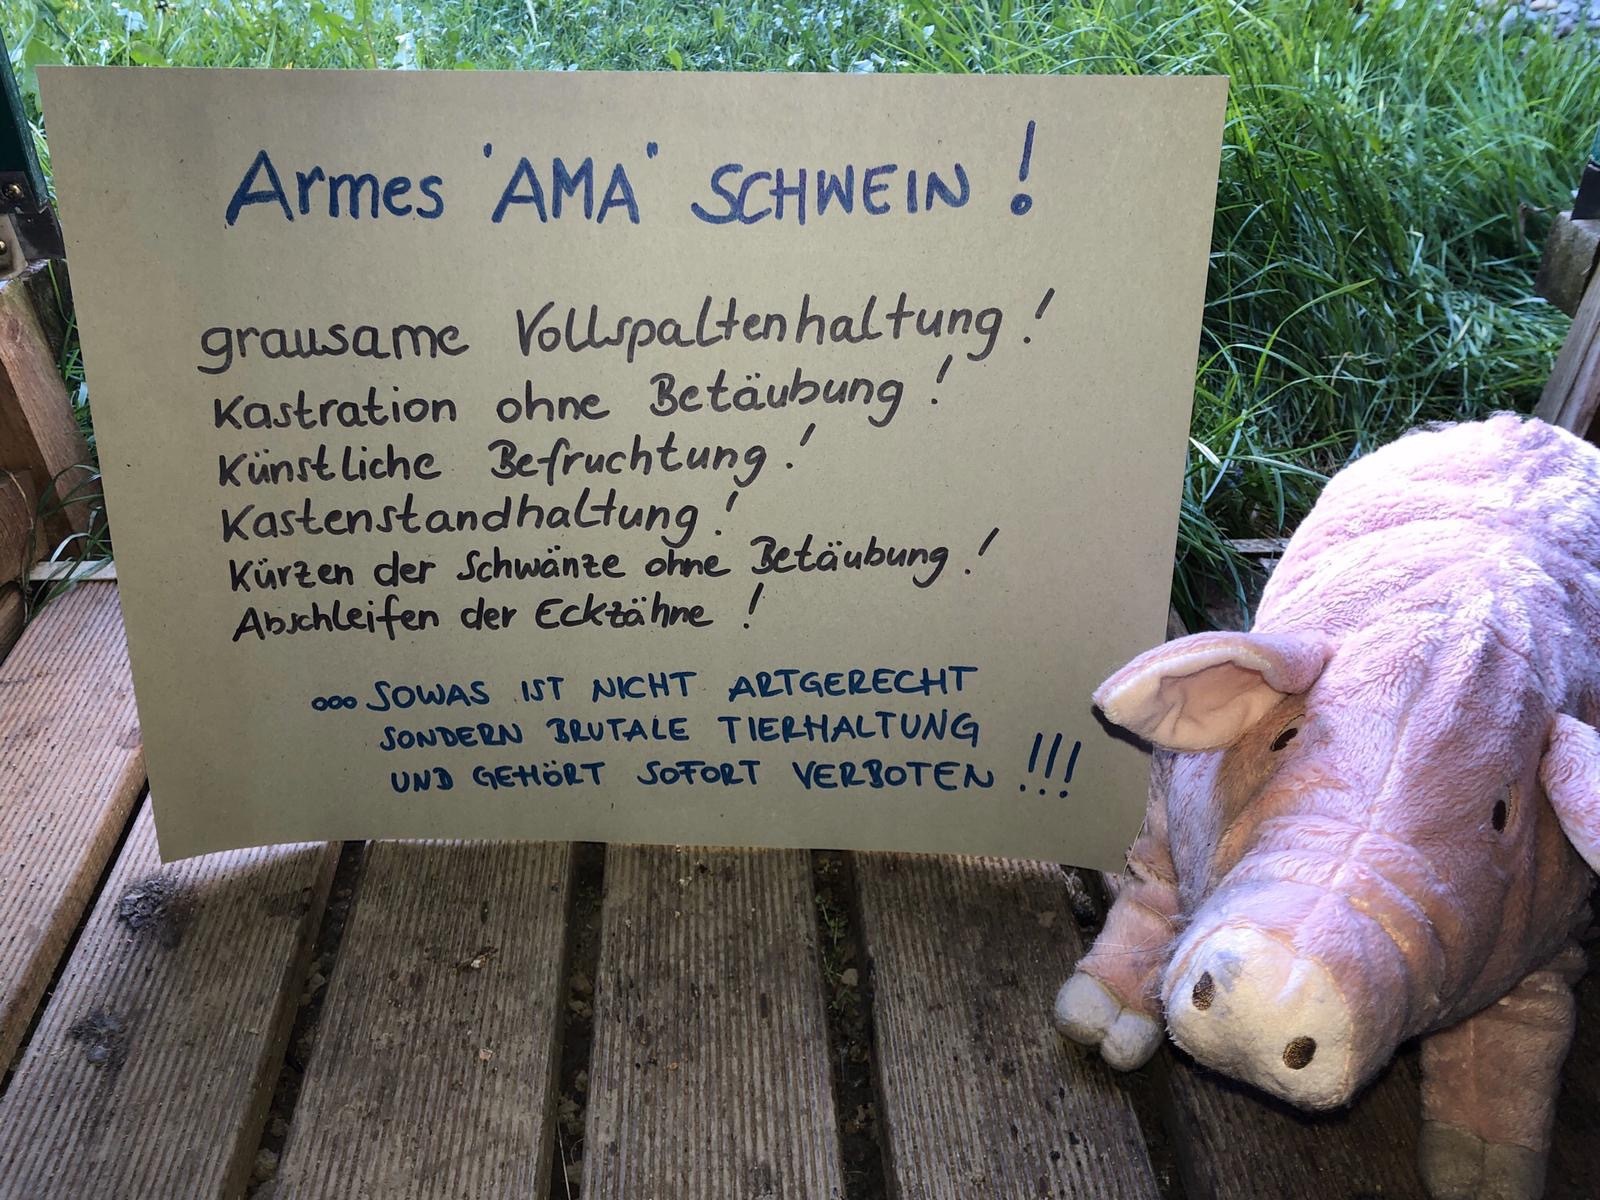 Armes "AMA" SCHWEIN!
grausame Vollspaltenhaltung!
Kastration ohne Betäubung!
Künstliche Befruchtung!
Kastenstandhaltung!
Kürzen der Schwänze ohne Betäubung!
Abschleifen der Eckzähne!
...SOWAS IST NICHT ARTGERECHT
SONDERN BRUTALE TIERHALTUNG
UND GEHÖRT SOFORT VERBOTEN!!!